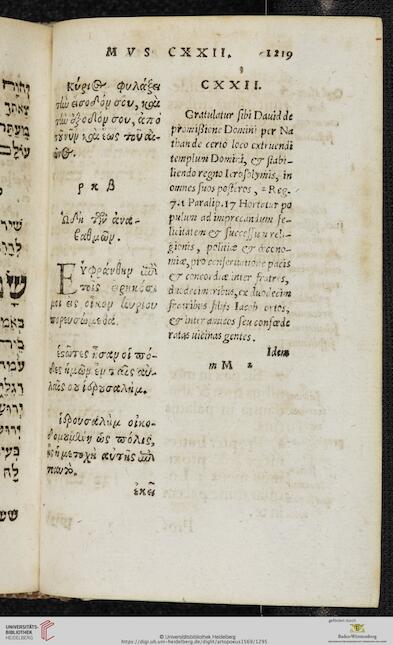 MVS CXXII. 1219
κύριος φυλάξει
τὴν εἴσοδόν σου, καὶ
τὴν ἔξοδόν σου, ἀπὸ
τοῦ νῦν καὶ ἕως τοῦ αἰ-
ῶνος.
ρκβ
Ὠδὴ τῶν ἀνα-
βαθμῶν.
Εὐφράνθην ἐπὶ
τοῖς εἰρηκόσι
μοι εἰς οἶκον κυρίου
πορευσώμεθα.
ἑστῶτες ἦσαν οἱ πό-
δες ἡμῶν ἐν ταῖς αὐ-
λαῖς σου ἱερουσαλήμ.
ἱερουσαλὴμ οἰκο-
δομουμένη ὡς πόλις,
ἧς ἡ μετοχὴ αὐτῆς ἐπὶ
ἐκεῖ
CXXII.
Gratulatur sibi Dauid de
promißione Domini per Na
thande certò loco extruendi
templum Domini, & stabi-
liendo regno Ierosolymis, in
omnes suos posteros, 2 Reg.
7.1 Paralip. 17 Hortatur po
pulum ad imprecandum fe-
licitatem & successum reli-
gionis, politiæ & œcono-
miæ, pro conseruatione pacis
& concordiæ inter fratres,
duodecim tribus, ex duodecim
fratribus filijs Iacob ortos,
& inter amicos seu confœde
ratas uicinas gentes.
Idem
mM 2
שי
UNIVERSITÄTS-
BIBLIOTHEK
HEIDELBERG
© Universitätsbibliothek Heidelberg
https://digi.ub.uni-heidelberg.de/diglit/artopoeus1569/1295
gefördert durch
Baden-Württemberg